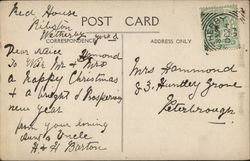 Red House
Ribston
Wetherby Yorks
POST CARD
CORRESPONDENCE
ADDRESS ONLY
Dear Neice Hammond
To Wish Mr & Mrs
a happy Christmas
& a bright & Prosperous
new year
from your loving
aunt & Uncle
H & H Barton
Mrs Hammond
83 Huntley Grove
Peterbrough